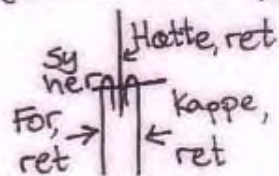 Hætte, ret
Sy
her
For,
ret
Kappe,
ret